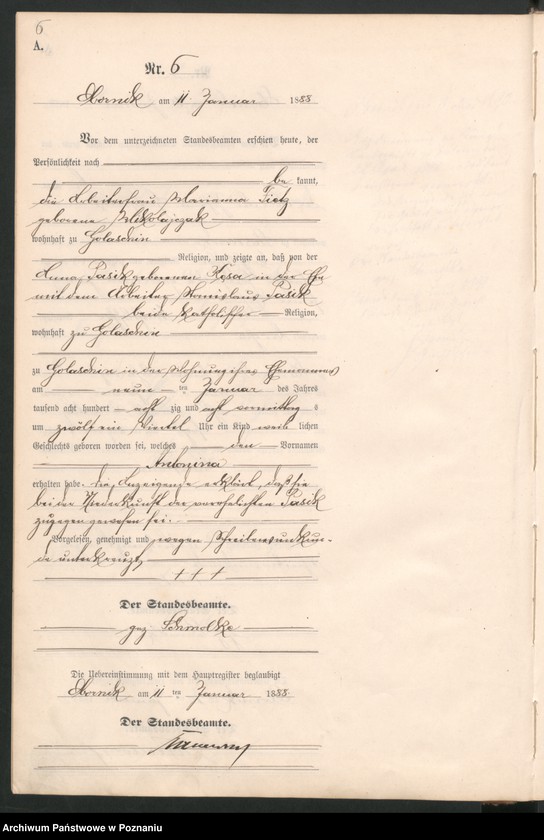 6
A.
Nr. 6
Obornik am 11 Januar 1888
Vor dem unterzeichneten Standesbeamten erschien heute, der
Persönlichkeit nach
be kannt,
die Arbeiterfrau Marianna Tietz
geborene Mikolajczak
wohnhaft zu Golaschin
Religion, und zeigte an, daß von der
Anna Pasik geborenen in der Ehe
mit dem Arbeiter Stanislaus Pasik
beide katholischer Religion,
wohnhaft zu Golaschin
zu Golaschin in der Wohnung ihres Ehemannes
am neun ten Januar des Jahres
tausend acht hundert acht zig und acht vormittag s
um zwölf ein Viertel Uhr ein Kind weib lichen
Geschlechts geboren worden sei, welches den Vornamen
Antonina
erhalten habe. Die Anzeigende erklärt, daß sie
bei der Niederkunft der verehelichten Pasik
zugegen gewesen sei.
Vorgelesen, genehmigt und wegen Schreibensunkun-
de unterkreuzt
+++
Der Standesbeamte.
gez Schmolke
Die Uebereinstimmung mit dem Hauptregister beglaubigt
Obornik am 11 ten Januar 1888
Der Standesbeamte.
Archiwum Państwowe w Poznaniu